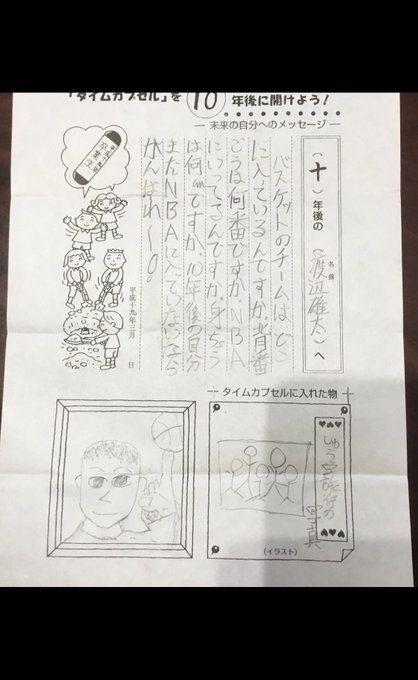 「タイムカプセル」を 10 年後に開けよう!
未来の自分へのメッセージ
(十)年後の(渡辺雄太)へ
名前
バスケットのチームは、どこ
に入っているんですか。背番
ごうは何番ですか。NBA
にいってるんですか。身ちょう
は何cmですか。10年後の自分
まだNBAに入っていなかったら
がんばれ〜。
平成十九年三月 日
卒業生
タイムカプセルに入れた物
しゅう学旅行の
写真
(イラスト)